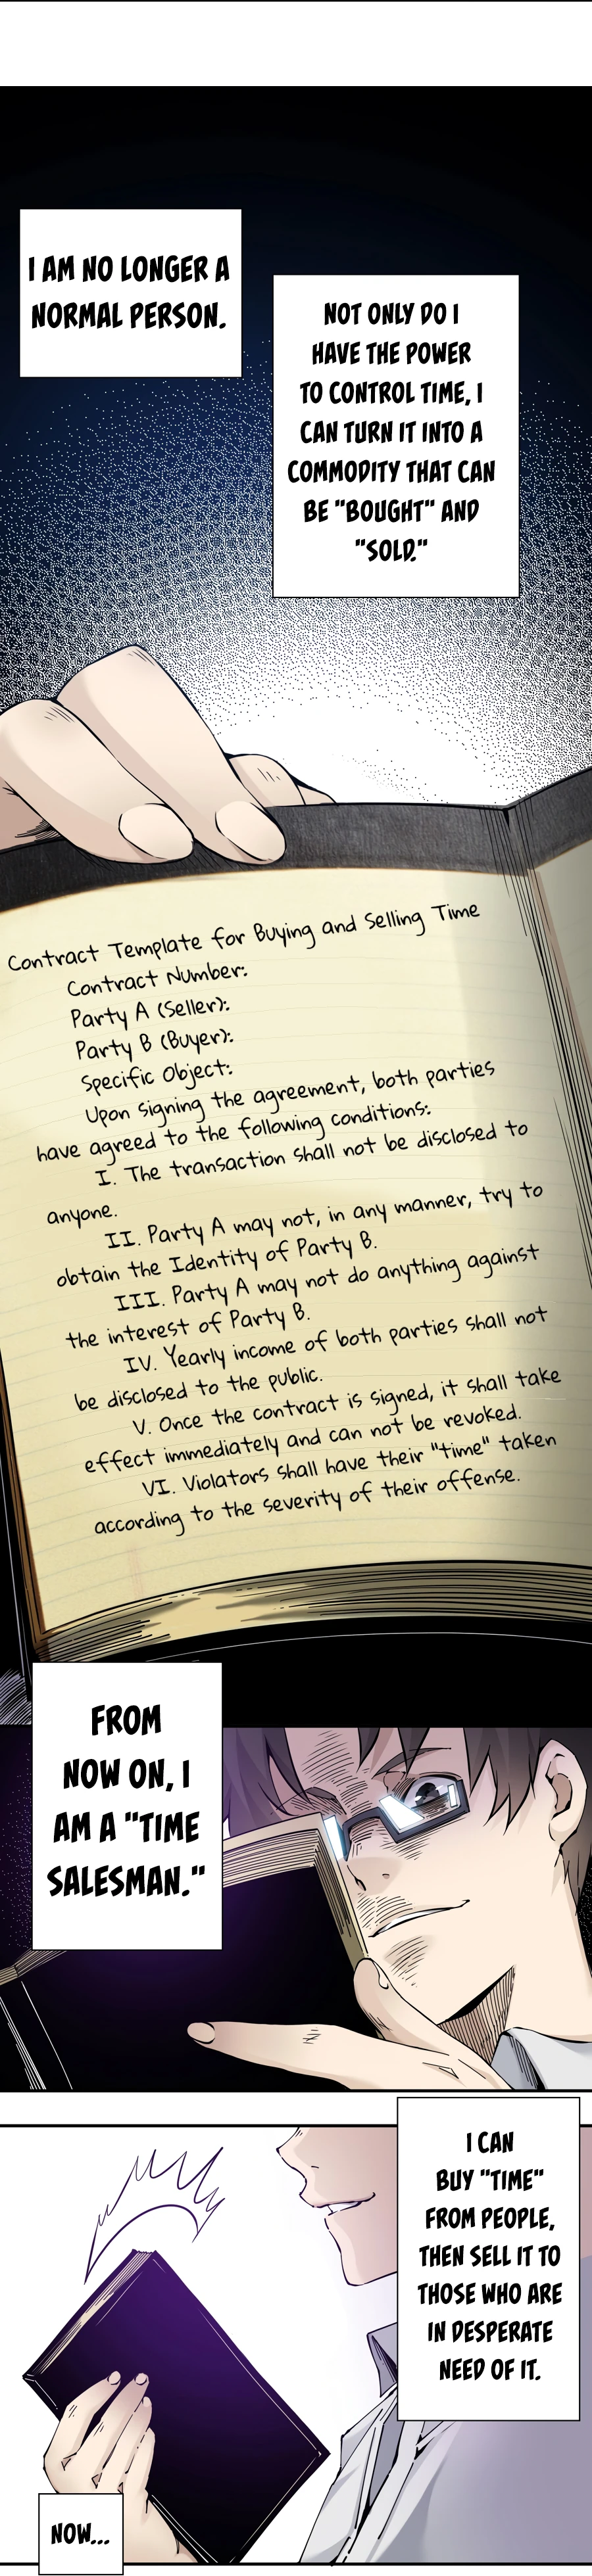 I AM NO LONGER A
NORMAL PERSON.
NOT ONLY DO I
HAVE THE POWER
TO CONTROL TIME, I
CAN TURN IT INTO A
COMMODITY THAT CAN
BE "BOUGHT" AND
"SOLD."
Contract Template for Buying and Selling Time
Contract Number:
Party A (Seller):
Party B (Buyer):
Specific Object:
Upon signing the agreement, both parties
have agreed to the following conditions:
I. The transaction shall not be disclosed to
anyone.
II. Party A may not, in any manner, try to
obtain the Identity of Party B.
III. Party A may not do anything against
the interest of Party B.
IV. Yearly income of both parties shall not
be disclosed to the public.
V. Once the contract is signed, it shall take
effect immediately and can not be revoked.
VI. Violators shall have their "time" taken
according to the severity of their offense.
FROM
NOW ON, I
AM A "TIME
SALESMAN."
I CAN
BUY "TIME"
FROM PEOPLE,
THEN SELL IT TO
THOSE WHO ARE
IN DESPERATE
NEED OF IT.
NOW...